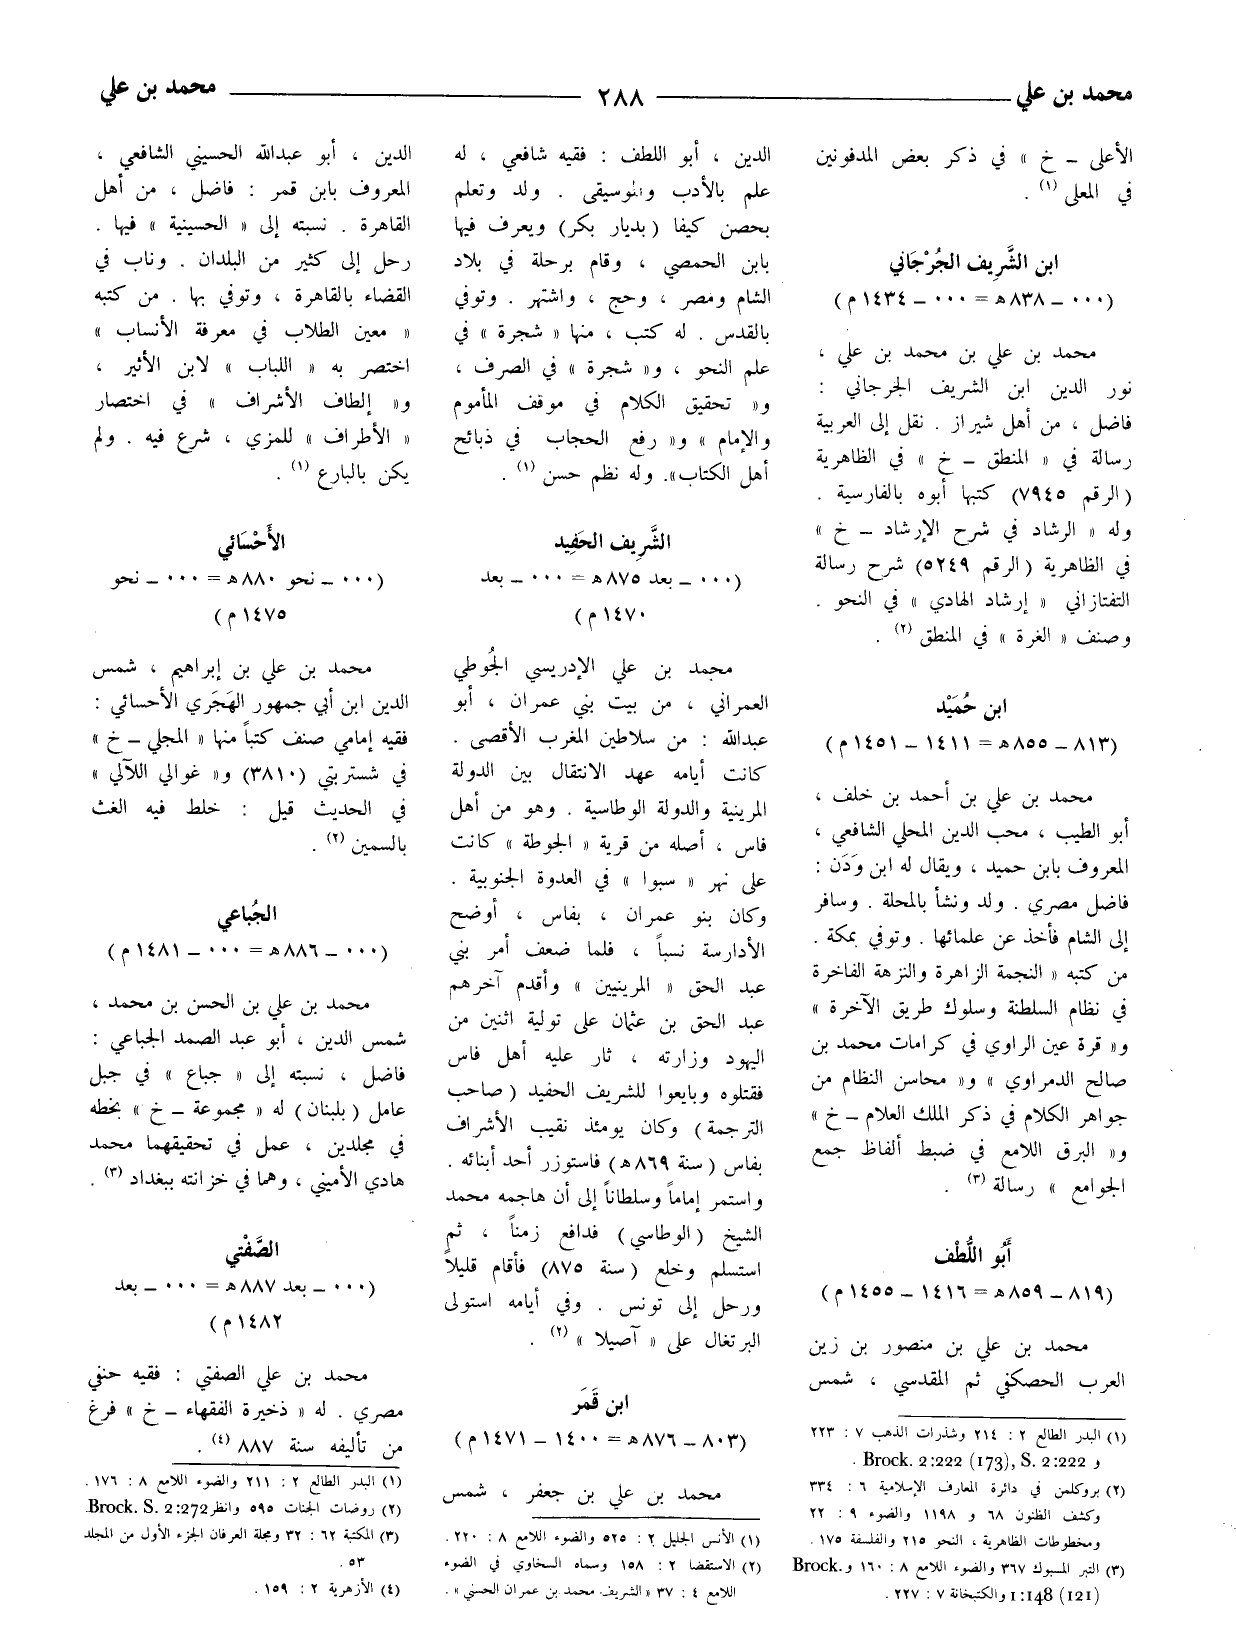 محمد بن علي ٢٨٨ محمد بن علي
الأعلى ـ خ » في ذكر بعض المدفونين
في المعلى (١) .
ابن الشَّرِيف الجُرْجَاني
(٠٠٠ ـ ٨٣٨ هـ = ٠٠٠ ـ ١٤٣٤ م)
محمد بن علي بن محمد بن علي ،
نور الدين ابن الشريف الجرجاني :
فاضل ، من أهل شيراز . نقل إلى العربية
رسالة في « المنطق ـ خ » في الظاهرية
(الرقم ٧٩٤٥) كتبها أبوه بالفارسية .
وله « الرشاد في شرح الإرشاد ـ خ »
في الظاهرية (الرقم ٥٢٤٩) شرح رسالة
التفتازاني « إرشاد الهادي » في النحو .
وصنف « الغرة » في المنطق (٢) .
ابن حُمَيْد
(٨١٣ ـ ٨٥٥ هـ = ١٤١١ ـ ١٤٥١ م)
محمد بن علي بن أحمد بن خلف ،
أبو الطيب ، محب الدين المحلي الشافعي ،
المعروف بابن حميد ، ويقال له ابن وَدَن :
فاضل مصري . ولد ونشأ بالمحلة . وسافر
إلى الشام فأخذ عن علمائها . وتوفي بمكة .
من كتبه « النجمة الزاهرة والنزهة الفاخرة
في نظام السلطنة وسلوك طريق الآخرة »
و« قرة عين الراوي في كرامات محمد بن
صالح الدمراوي » و« محاسن النظام من
جواهر الكلام في ذكر الملك العلام ـ خ »
و« البرق اللامع في ضبط ألفاظ جمع
الجوامع » رسالة (٣) .
أَبُو اللُّطْف
(٨١٩ ـ ٨٥٩ هـ = ١٤١٦ ـ ١٤٥٥ م)
محمد بن علي بن منصور بن زين
العرب الحصكفي ثم المقدسي ، شمس
(١) البدر الطالع ٢ : ٢١٤ وشذرات الذهب ٧ : ٢٢٣
و Brock. 2:222 (173), S. 2:222 .
(٢) بروكلمن في دائرة المعارف الإسلامية ٦ : ٣٣٤
وكشف الظنون ٦٨ و ١١٩٨ والضوء ٩ : ٢٢
ومخطوطات الظاهرية ، النحو ٢١٥ والفلسفة ١٧٥ .
(٣) التبر المسبوك ٣٦٧ والضوء اللامع ٨ : ١٦٠ و Brock.
1:148 (121) والكتبخانة ٧ : ٢٢٧ .
الدين ، أبو اللطف : فقيه شافعي ، له
علم بالأدب والموسيقى . ولد وتعلم
بحصن كيفا (بديار بكر) ويعرف فيها
بابن الحمصي ، وقام برحلة في بلاد
الشام ومصر ، وحج ، واشتهر . وتوفي
بالقدس . له كتب ، منها « شجرة » في
علم النحو ، و« شجرة » في الصرف ،
و« تحقيق الكلام في موقف المأموم
والإمام » و« رفع الحجاب في ذبائح
أهل الكتاب». وله نظم حسن (١) .
الشَّرِيف الحَفِيد
(٠٠٠ ـ بعد ٨٧٥ هـ = ٠٠٠ ـ بعد
١٤٧٠ م)
محمد بن علي الإدريسي الجُوطي
العمراني ، من بيت بني عمران ، أبو
عبدالله : من سلاطين المغرب الأقصى .
كانت أيامه عهد الانتقال بين الدولة
المرينية والدولة الوطاسية . وهو من أهل
فاس ، أصله من قرية « الجوطة » كانت
على نهر « سبوا » في العدوة الجنوبية .
وكان بنو عمران ، بفاس ، أوضح
الأدارسة نسباً ، فلما ضعف أمر بني
عبد الحق « المرينيين » وأقدم آخرهم
عبد الحق بن عثمان على تولية اثنين من
اليهود وزارته ، ثار عليه أهل فاس
فقتلوه وبايعوا للشريف الحفيد (صاحب
الترجمة) وكان يومئذ نقيب الأشراف
بفاس (سنة ٨٦٩ هـ) فاستوزر أحد أبنائه .
واستمر إماماً وسلطاناً إلى أن هاجمه محمد
الشيخ (الوطاسي) فدافع زمناً ، ثم
استسلم وخلع (سنة ٨٧٥) فأقام قليلاً
ورحل إلى تونس . وفي أيامه استولى
البرتغال على « آصيلا » (٢) .
ابن قَمَر
(٨٠٣ ـ ٨٧٦ هـ = ١٤٠٠ ـ ١٤٧١ م)
محمد بن علي بن جعفر ، شمس
(١) الأنس الجليل ٢ : ٥٢٥ والضوء اللامع ٨ : ٢٢٠ .
(٢) الاستقضا ٢ : ١٥٨ وسماه السخاوي في الضوء
اللامع ٤ : ٣٧ « الشريف محمد بن عمران الحسني » .
الدين ، أبو عبدالله الحسيني الشافعي ،
المعروف بابن قمر : فاضل ، من أهل
القاهرة . نسبته إلى « الحسينية » فيها .
رحل إلى كثير من البلدان . وناب في
القضاء بالقاهرة ، وتوفي بها . من كتبه
« معين الطلاب في معرفة الأنساب »
اختصر به « اللباب » لابن الأثير ،
و« إلطاف الأشراف » في اختصار
« الأطراف » للمزي ، شرع فيه . ولم
يكن بالبارع (١) .
الأَحْسَائي
(٠٠٠ ـ نحو ٨٨٠ هـ = ٠٠٠ ـ نحو
١٤٧٥ م)
محمد بن علي بن إبراهيم ، شمس
الدين ابن أبي جمهور الهَجَري الأحسائي :
فقيه إمامي صنف كتباً منها « المجلي ـ خ »
في شستربتي (٣٨١٠) و« غوالي اللآلي »
في الحديث قيل : خلط فيه الغث
بالسمين (٢) .
الجُباعي
(٠٠٠ ـ ٨٨٦ هـ = ٠٠٠ ـ ١٤٨١ م)
محمد بن علي بن الحسن بن محمد ،
شمس الدين ، أبو عبد الصمد الجباعي :
فاضل ، نسبته إلى « جباع » في جبل
عامل (بلبنان) له « مجموعة ـ خ » بخطه
في مجلدين ، عمل في تحقيقهما محمد
هادي الأميني ، وهما في خزانته ببغداد (٣) .
الصَّفْتي
(٠٠٠ ـ بعد ٨٨٧ هـ = ٠٠٠ ـ بعد
١٤٨٢ م)
محمد بن علي الصفتي : فقيه حنفي
مصري . له « ذخيرة الفقهاء ـ خ » فرغ
من تأليفه سنة ٨٨٧ (٤) .
(١) البدر الطالع ٢ : ٢١١ والضوء اللامع ٨ : ١٧٦ .
(٢) روضات الجنات ٥٩٥ وانظر Brock. S. 2:272.
(٣) المكتبة ٦٢ : ٣٢ ومجلة العرفان الجزء الأول من المجلد
٥٣ .
(٤) الأزهرية ٢ : ١٥٩ .